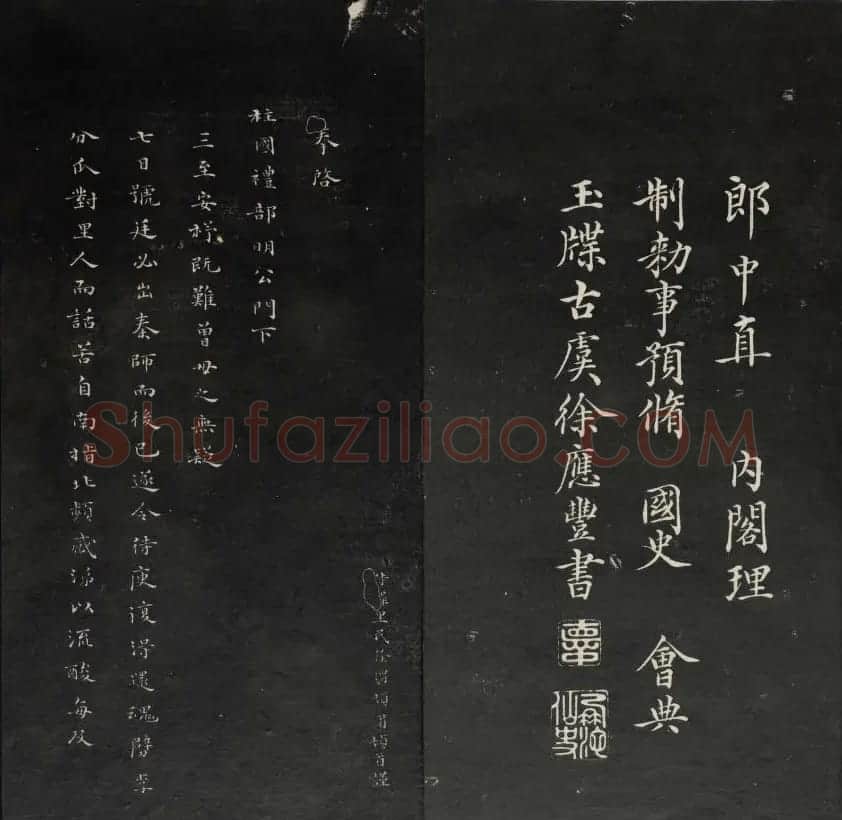 郎中直 內閣理
制勑事預脩 國史 會典
玉牒古虞徐應豐書
罪里民徐渭頓首頓首謹
奉啓
柱國禮部明公門下
三至安杼既難曾母之無疑
七日號廷必出秦師而後已遂令待庾復得還魂李
分瓜對里人而話苦自南指北頻感涕以流酸每及
Shufaziliao.COM